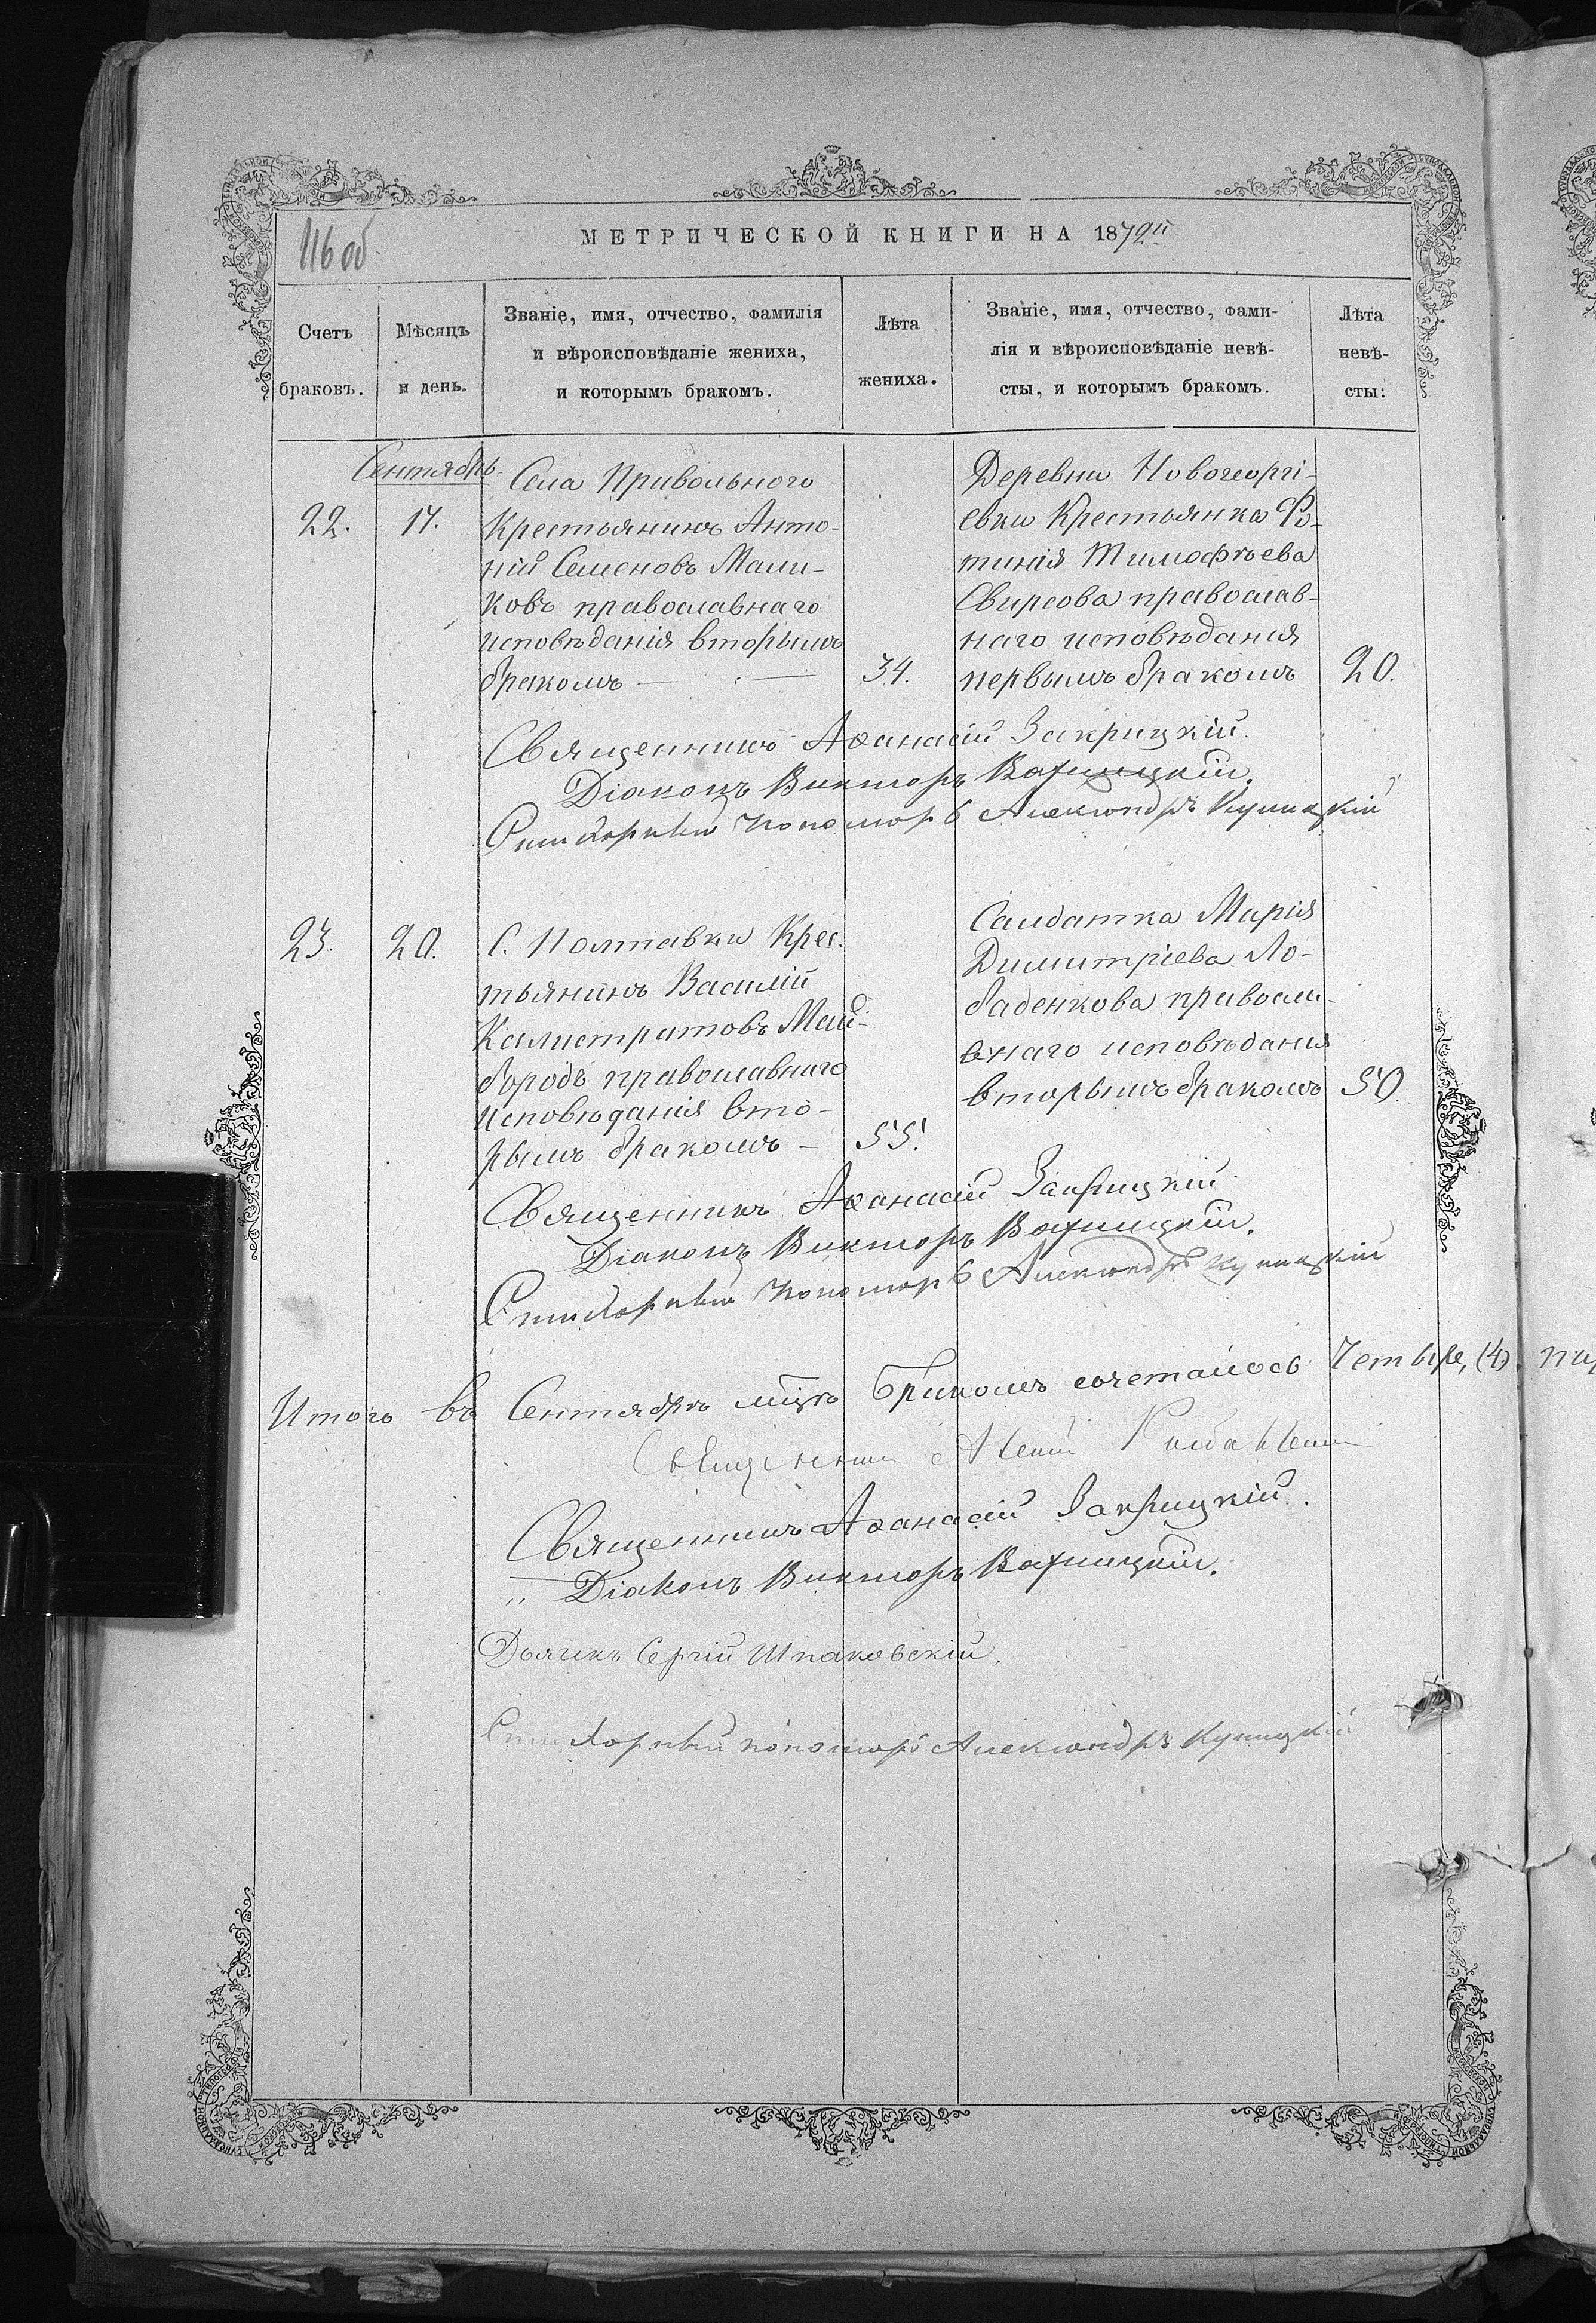 116 об
МЕТРИЧЕСКОЙ КНИГИ НА 1879й
Счетъ браковъ.
Мѣсяцъ и день.
Званіе, имя, отчество, фамилія
и вѣроисповѣданіе жениха,
и которымъ бракомъ.
Лѣта жениха.
Званіе, имя, отчество, фами-
лія и вѣроисповѣданіе невѣ-
сты, и которымъ бракомъ.
Лѣта невѣ-
сты.
Сентябрь
22.
17.
Села Привольнаго
Крестьянинъ Анто-
ній Семеновъ Мали-
ковъ православнаго
исповѣданія вторымъ
бракомъ —
34.
Деревни Новогеоргі-
евки Крестьянка Фо-
тинія Тимофѣева
Свирсова православ-
наго исповѣданія
первымъ бракомъ
20.
Священникъ Аѳанасій Закрицкій.
Діаконъ Викторъ
пономарь Александръ Куницкій
23.
20.
С. Полтавки Крес-
тьянинъ Василій
Калистратовъ Май-
бородъ православнаго
исповѣданія вто-
рымъ бракомъ —
55.
Салдатка Марія
Димитріева Ло-
баденкова правосла-
внаго исповѣданія
вторымъ бракомъ
50
Священникъ Аѳанасій Закрицкій
Діаконъ Викторъ
пономарь Александръ Куницкій
Итого въ Сентябрѣ мцѣ бракомъ сочеталось Четыре, (4).
Священникъ
Священникъ Аѳанасій Закрицкій.
Діаконъ Викторъ
Дьячекъ Сергій Шпаковскій.
пономарь Александръ Куницкій